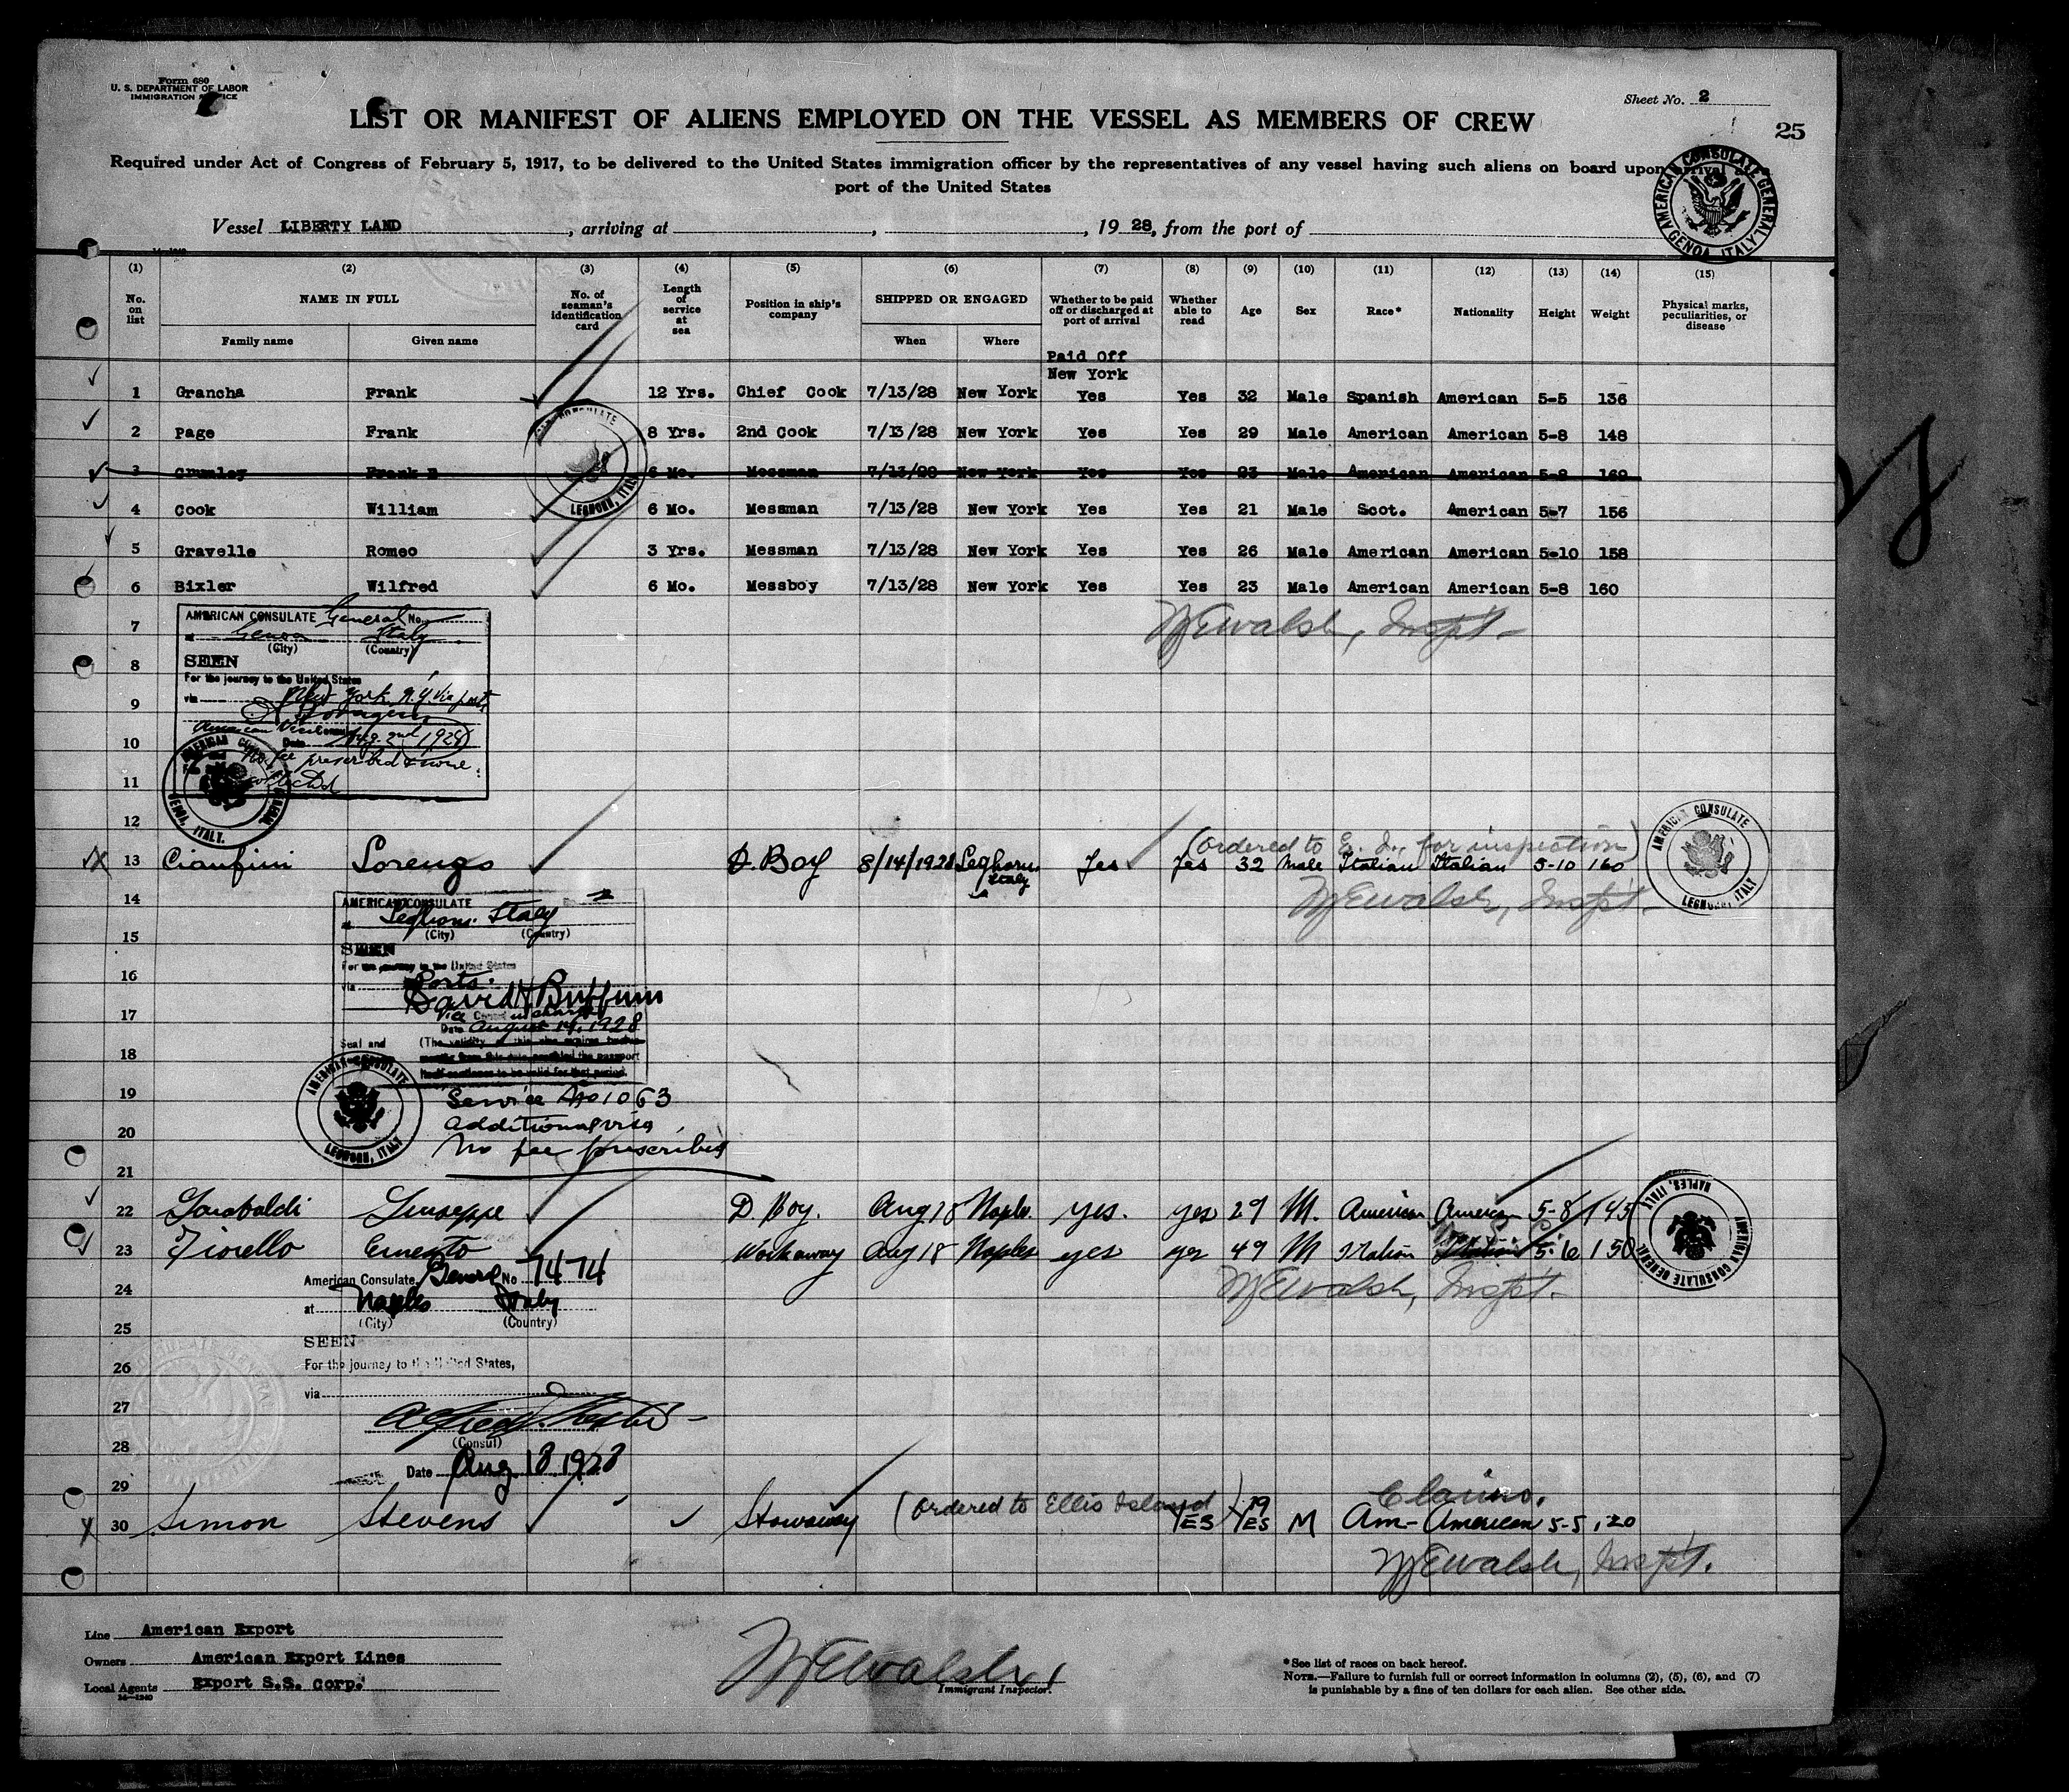 Form 680
U. S. DEPARTMENT OF LABOR
IMMIGRATION SERVICE
Sheet No. 2
25
LIST OR MANIFEST OF ALIENS EMPLOYED ON THE VESSEL AS MEMBERS OF CREW
Required under Act of Congress of February 5, 1917, to be delivered to the United States immigration officer by the representatives of any vessel having such aliens on board upon arrival at a
port of the United States
AMERICAN CONSULATE GENERAL GENOA, ITALY
Vessel LIBERTY LAND, arriving at , , 19 28, from the port of
14—1240
(1) (2) (3) (4) (5) (6) (7) (8) (9) (10) (11) (12) (13) (14) (15)
No. on list NAME IN FULL No. of seaman's identification card Length of service at sea Position in ship's company SHIPPED OR ENGAGED Whether to be paid off or discharged at port of arrival Whether able to read Age Sex Race* Nationality Height Weight Physical marks, peculiarities, or disease
Family name Given name When Where
Paid Off
New York
1 Grancha Frank 12 Yrs. Chief Cook 7/13/28 New York Yes Yes 32 Male Spanish American 5-5 136
2 Page Frank 8 Yrs. 2nd Cook 7/13/28 New York Yes Yes 29 Male American American 5-8 148
3 Crumley Frank B 6 Mo. Messman 7/13/28 New York Yes Yes 23 Male American American 5-8 160
AMERICAN CONSULATE LEGHORN, ITALY
4 Cook William 6 Mo. Messman 7/13/28 New York Yes Yes 21 Male Scot. American 5-7 156
5 Gravelle Romeo 3 Yrs. Messman 7/13/28 New York Yes Yes 26 Male American American 5-10 158
6 Bixler Wilfred 6 Mo. Messboy 7/13/28 New York Yes Yes 23 Male American American 5-8 160
AMERICAN CONSULATE General No.
7
WEWalsh, Inspt.
at Genoa Italy
(City) (Country)
8
SEEN
For the journey to the United States
via New York, N.Y. via ports
9
American Vice Consul
10
Date Aug. 2nd 1928
No fee prescribed & none
collected
11
AMERICAN CONSULATE GENERAL GENOA, ITALY.
12
(Ordered to E. I., for inspection)
13 Cianfini Lorenzo D. Boy 8/14/1928 Leghorn Italy Yes Yes 32 Male Italian Italian 5-10 160
AMERICAN CONSULATE LEGHORN, ITALY
WEWalsh, Inspt.
14
AMERICAN CONSULATE 2
at Leghorn. Italy
(City) (Country)
15
SEEN
For the journey to the United States
16
via Ports.
David H Buffum
17
Vice Consul in charge
Date August 14, 1928
Seal and (The validity of this visa expires twelve
18
months from this date provided the passport
itself continues to be valid for that period.
AMERICAN CONSULATE LEGHORN, ITALY
19
Service No 1063
additional visa
20
No fee prescribed
21
22 Garabaldi Giuseppe D. Boy. Aug 18 Naples. yes. yes 29 M. American American 5-8 145
23 Fiorello Ernesto Workaway Aug 18 Naples yes yes 49 M Italian Italian 5-6 150
AMERICAN CONSULATE GENERAL NAPLES, ITALY.
WEWalsh, Inspt.
American Consulate General No 7474
24
at Naples Italy
(City) (Country)
25
SEEN
26
For the journey to the United States,
via
27
28
(Consul)
Date Aug 18 1928
29
(Ordered to Ellis Island) 19 Claims.
30 Simon Stevens Stowaway YES YES M Am- American 5-5 120
WEWalsh, Inspt.
Line American Export
Owners American Export Lines
Local Agents Export S.S. Corp.
14—1240
WEWalsh,
Immigrant Inspector.
*See list of races on back hereof.
NOTE.—Failure to furnish full or correct information in columns (2), (5), (6), and (7)
is punishable by a fine of ten dollars for each alien. See other side.